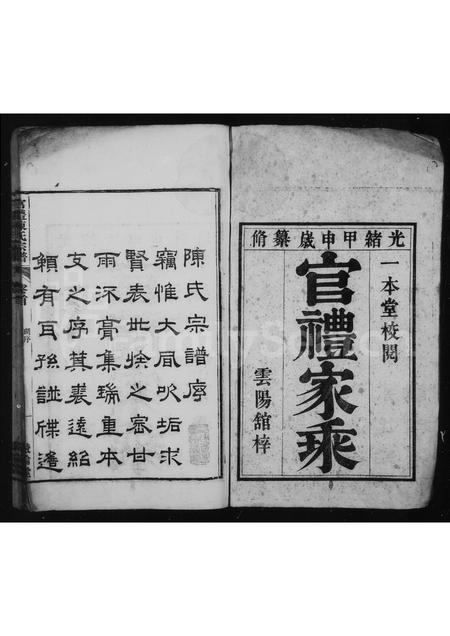 光緒甲申歲纂脩
一本堂校閱
官禮家乘
雲陽舘梓
陳氏宗譜序
竊惟大風吹垢求
賢表此族之密甘
雨深膏集瑞重本
支之序其裘遠紹
賴有耳孫誌牒